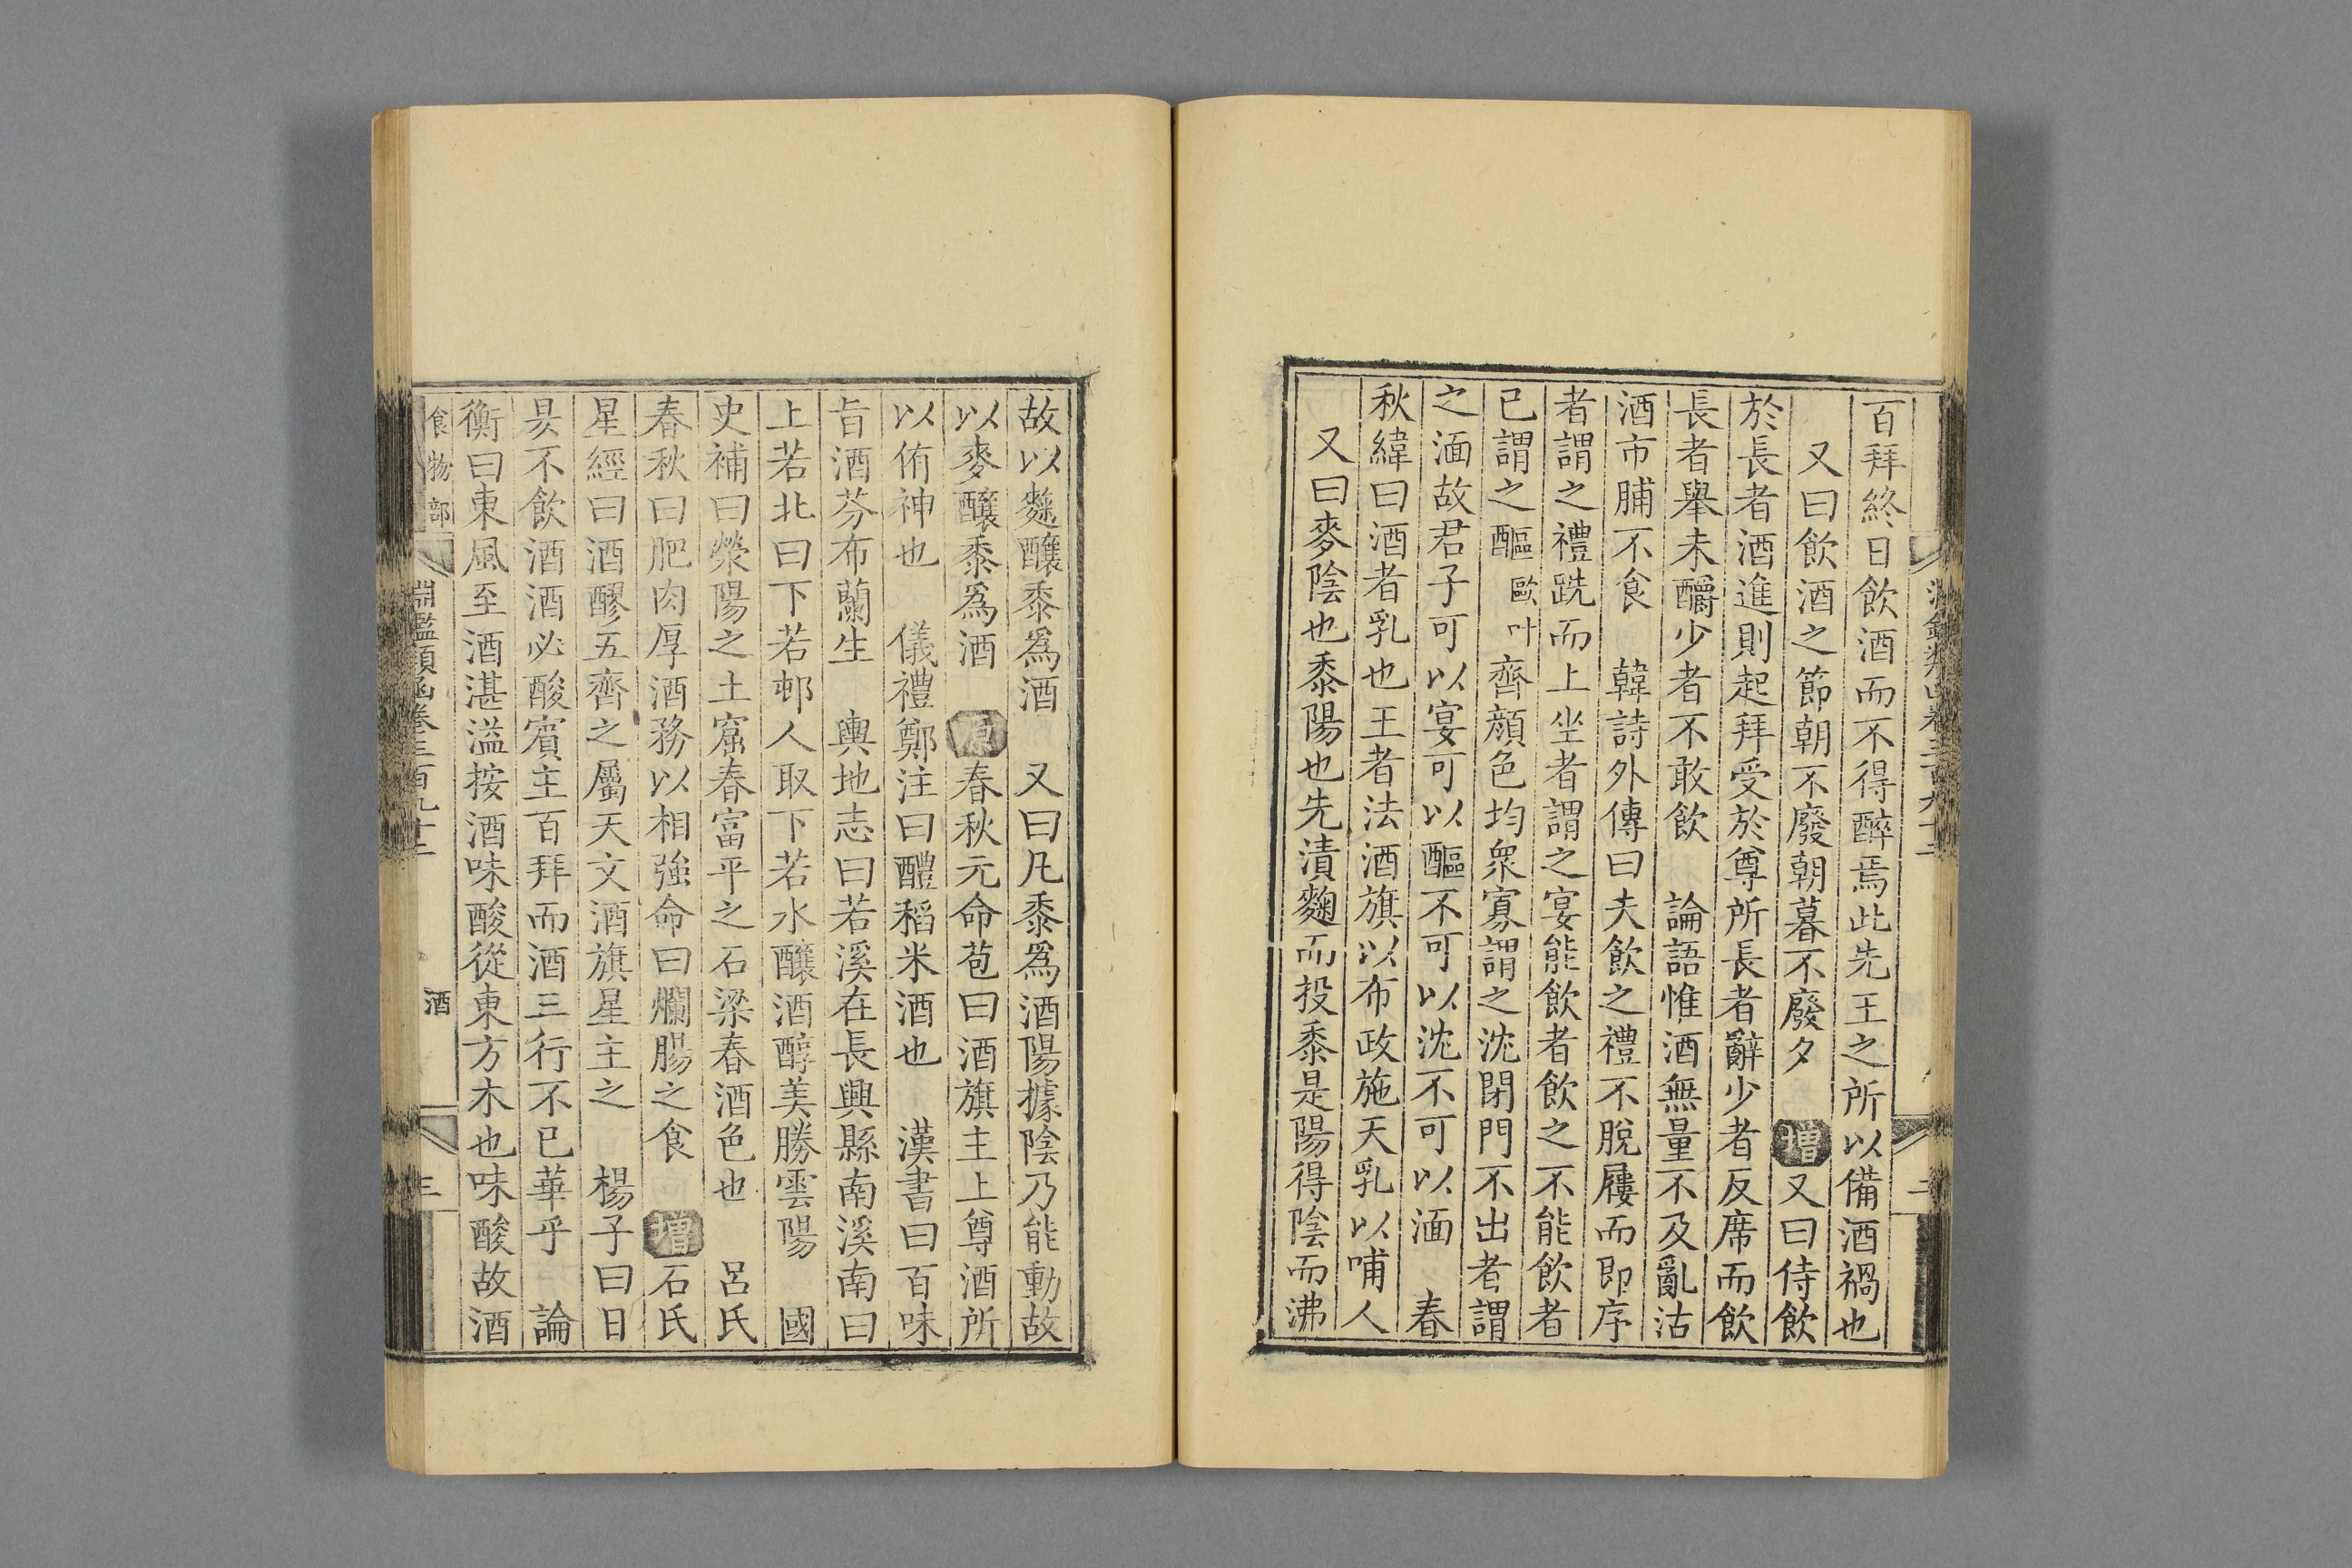 百拜終日飲酒而不得醉焉此先王之所以備酒禍也
又曰飲酒之節朝不廢朝暮不廢夕 增 又曰侍飲
於長者酒進則起拜受於尊所長者辭少者反席而飲
長者舉未釂少者不敢飲 論語惟酒無量不及亂沽
酒市脯不食 韓詩外傳曰夫飲之禮不脫屨而即序
者謂之禮跣而上坐者謂之宴能飲者飲之不能飲者
已謂之醧 歐叶 齊顔色均衆寡謂之沈閉門不出者謂
之湎故君子可以宴可以醧不可以沈不可以湎 春
秋緯曰酒者乳也王者法酒旗以布政施天乳以哺人
又曰麥陰也黍陽也先漬麴而投黍是陽得陰而沸
二
故以麹釀黍爲酒 又曰凡黍爲酒陽據陰乃能動故
以麥釀黍爲酒 原 春秋元命苞曰酒旗主上尊酒所
以侑神也 儀禮鄭注曰醴稻米酒也 漢書曰百味
旨酒芬布蘭生 輿地志曰若溪在長興縣南溪南曰
上若北曰下若邨人取下若水釀酒醇美勝雲陽 國
史補曰滎陽之土窟春富平之石梁春酒色也 呂氏
春秋曰肥肉厚酒務以相強命曰爛腸之食 增 石氏
星經曰酒醪五齊之屬天文酒旗星主之 楊子曰日
昃不飲酒酒必酸賓主百拜而酒三行不已華乎 論
衡曰東風至酒湛溢按酒味酸從東方木也味酸故酒
食物部 淵鑑類函卷三百九十二 酒 三